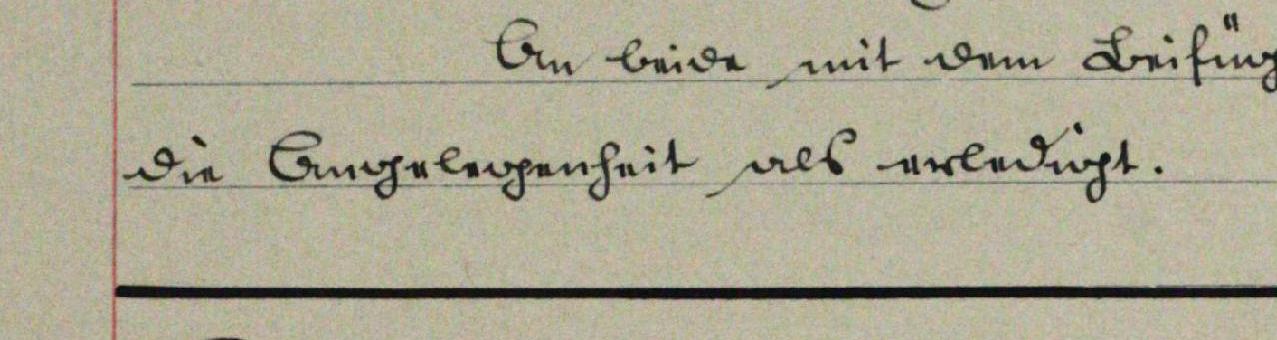 An beide mit dem Beifüg
die Angelegenheit als erledigt.